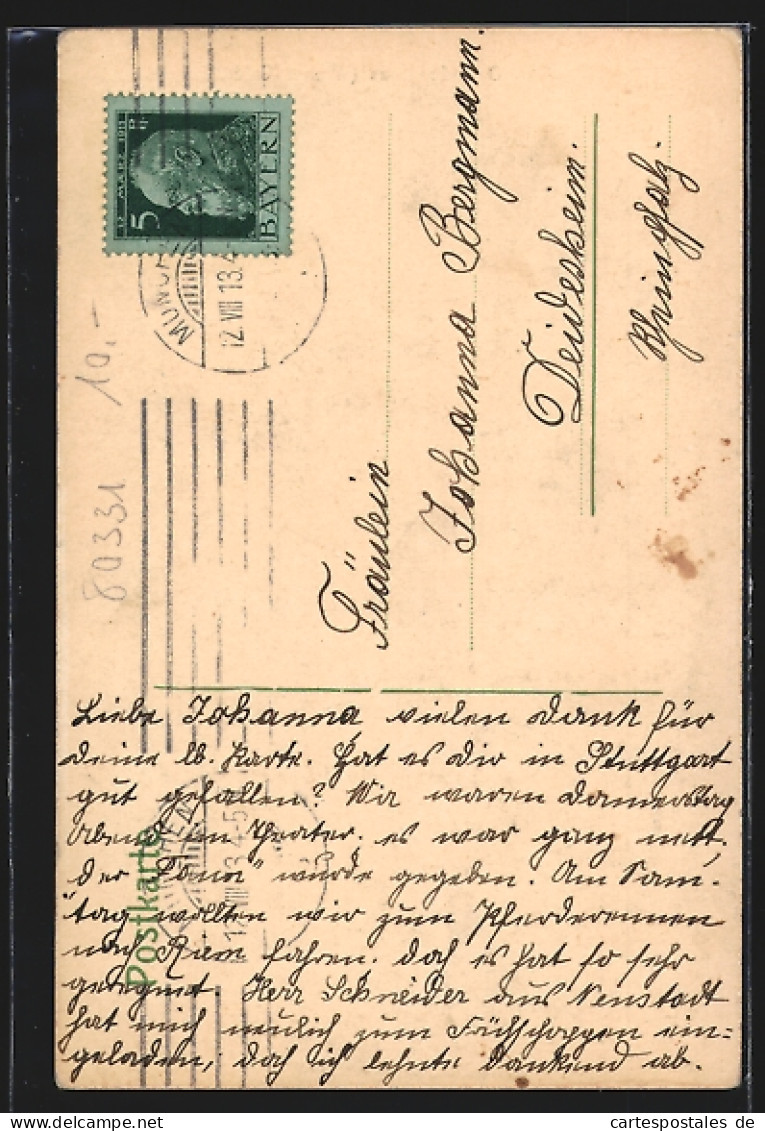 12 MÄRZ 1911
5 Pf
BAYERN
MÜNCHEN
12 VIII 13. 4-
10.-
80331
Fräulein
Johanna Bergmann.
Deidesheim.
Rheinpfalz.
Postkarte
12 VIII 13. 4-5
Liebe Johanna, vielen Dank für
deine lb. Karte. Hat es dir in Stuttgart
gut gefallen? Wir waren Donnerstag
Abend im Theater, es war ganz nett,
der "Faun" wurde gegeben. Am Sam-
tag wollten wir zum Pferderennen
nach Riem fahren, doch es hat so sehr
geregnet. Herr Schneider aus Neustadt
hat mich neulich zum Frühschoppen ein=
geladen, doch ich lehnte dankend ab.
cartespostales de